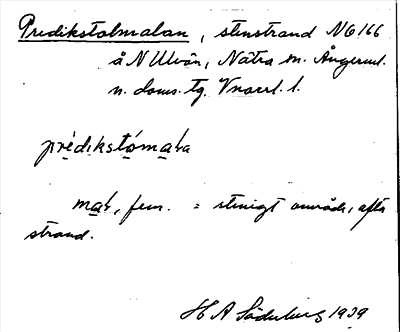 Predikstolmalan, stenstrand NG166
å N Ulvön, Nätra sn. Ångerml.
n. doms. tg.
prédikstómaLa
maL, fem. = stenigt område, ofta
strand.
H A Söderberg 1939